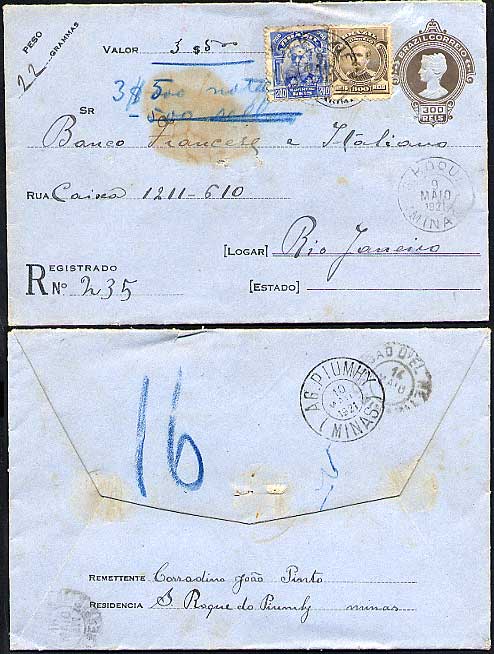 PESO
22 GRAMMAS
VALOR 3 $500
3$500
BRAZIL CORREIO
300
REIS
SR
Banco Francese e Italiano
RUA Caixa 1211-610
MAIO
1921
(MINAS
[LOGAR] Rio Janeiro
[ESTADO]
REGISTRADO
R Nº 235
16
AG. PIUMHY
10
MAIO
1921
(MINAS)
14
MAIO
REMETTENTE Corradino João Pinto
RESIDENCIA S. Roque do Piumhy minas